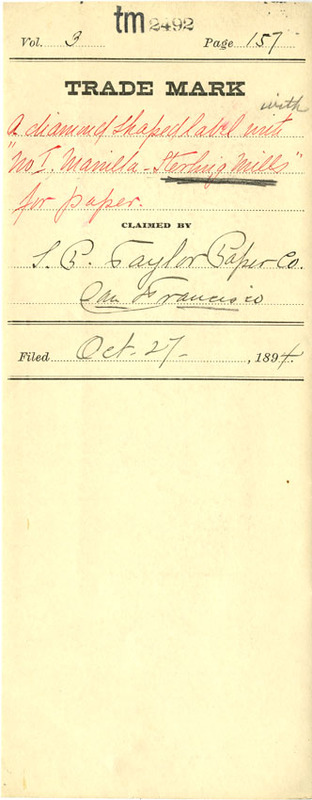 tm 2492
Vol. 3 Page 157
TRADE MARK
with
A diamond shaped label with
"No 1. Manilla - Sterling Mills"
for paper.
CLAIMED BY
S. P. Taylor Paper Co.
San Francisco
Filed Oct. 27 , 1894.